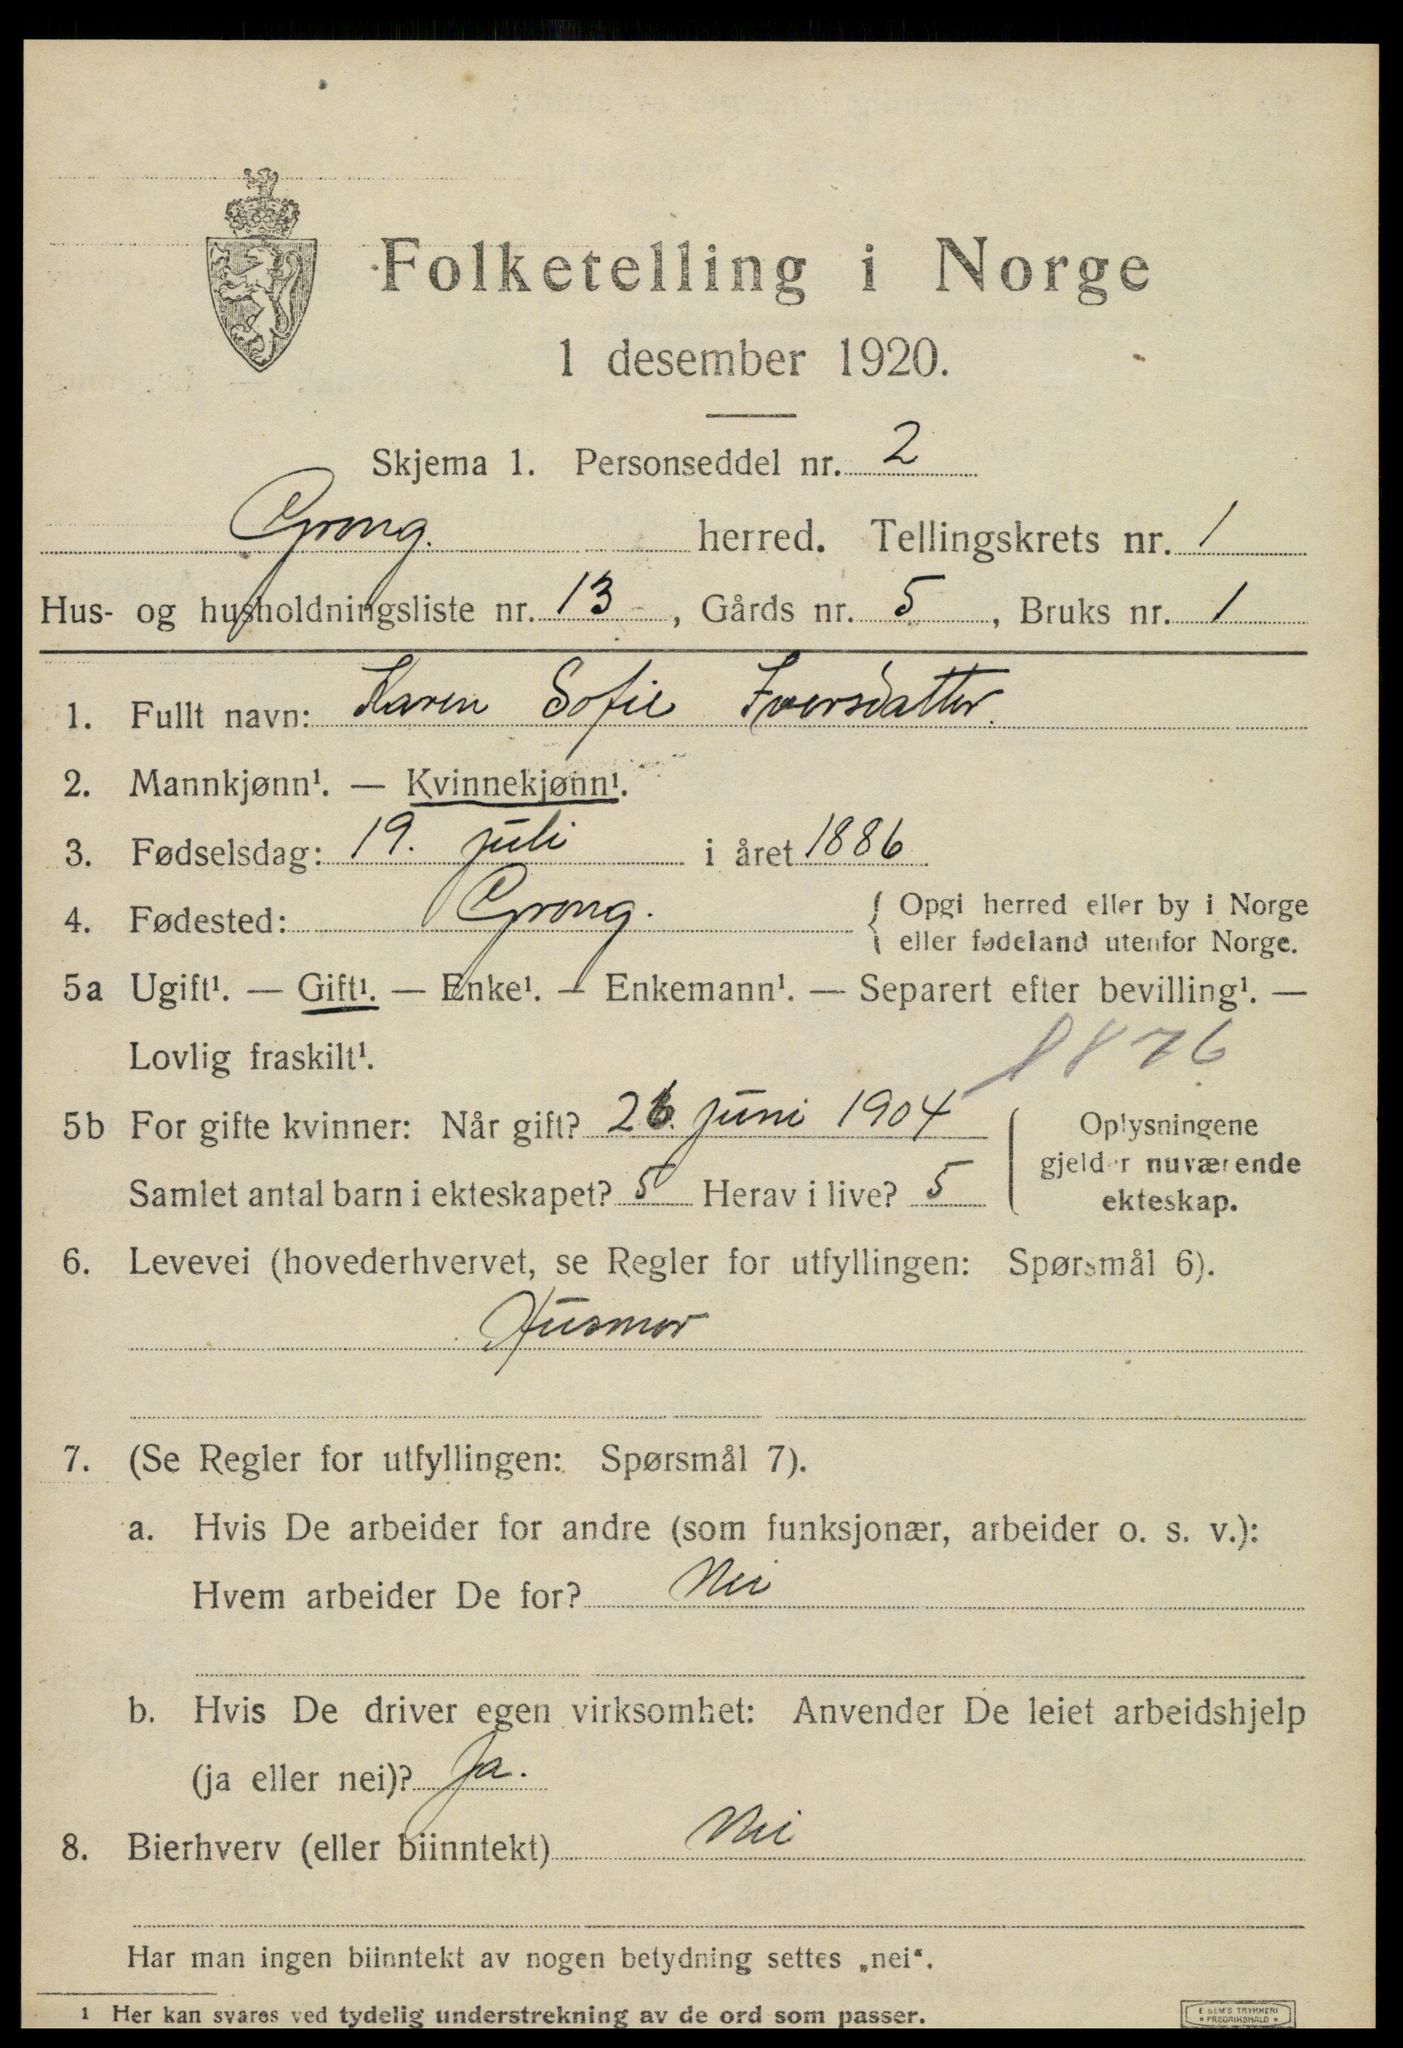 Folketelling i Norge
1 desember 1920.
Skjema 1. Personseddel nr. 2
Grong. herred. Tellingskrets nr. 1
Hus- og husholdningsliste nr. 13, Gårds nr. 5, Bruks nr. 1
1. Fullt navn: Karen Sofie Iversdatter.
2. Mannkjønn¹. — Kvinnekjønn¹.
3. Fødselsdag: 19. juli i året 1886
4. Fødested: Grong. { Opgi herred eller by i Norge
eller fødeland utenfor Norge.
5a Ugift¹. — Gift¹. — Enke¹. — Enkemann¹. — Separert efter bevilling¹. —
Lovlig fraskilt¹.
1876
5b For gifte kvinner: Når gift? 26. juni 1904
Samlet antal barn i ekteskapet? 5 Herav i live? 5
Oplysningene
gjelder nuværende
ekteskap.
6. Levevei (hovederhvervet, se Regler for utfyllingen: Spørsmål 6).
Husmor
7. (Se Regler for utfyllingen: Spørsmål 7).
a. Hvis De arbeider for andre (som funksjonær, arbeider o. s. v.):
Hvem arbeider De for? Nei
b. Hvis De driver egen virksomhet: Anvender De leiet arbeidshjelp
(ja eller nei)? Ja.
8. Bierhverv (eller biinntekt) Nei
Har man ingen biinntekt av nogen betydning settes „nei“.
1 Her kan svares ved tydelig understrekning av de ord som passer.
E SEM'S TRYKKERI
FREDRIKSHALD